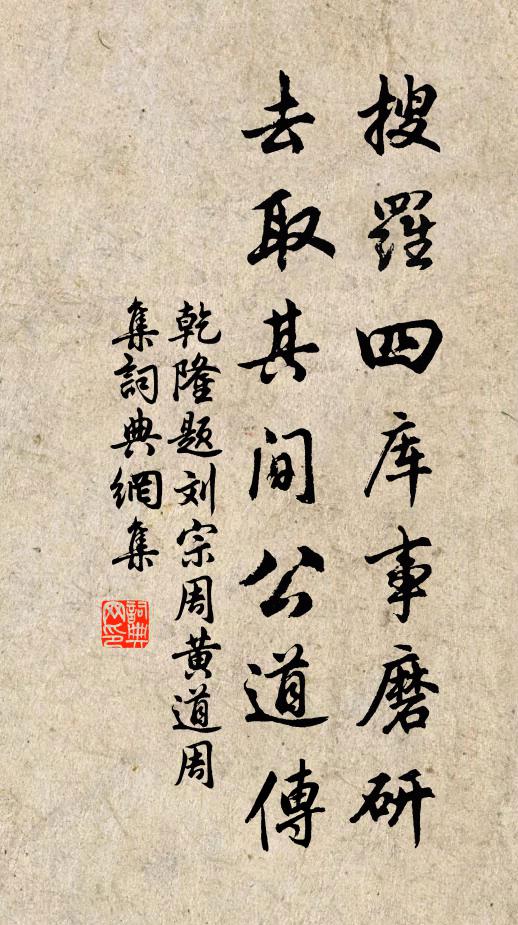 搜羅四库事磨研
去取其间公道傳
乾隆题刘宗周黄道周
集詞典網集
詞典
网印